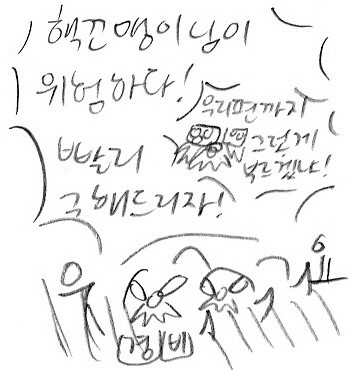 핵낀맹이님이
위험하다!
빨리
구해드리자!
우리편까지
그렇게
부르겠냐!
우
경비